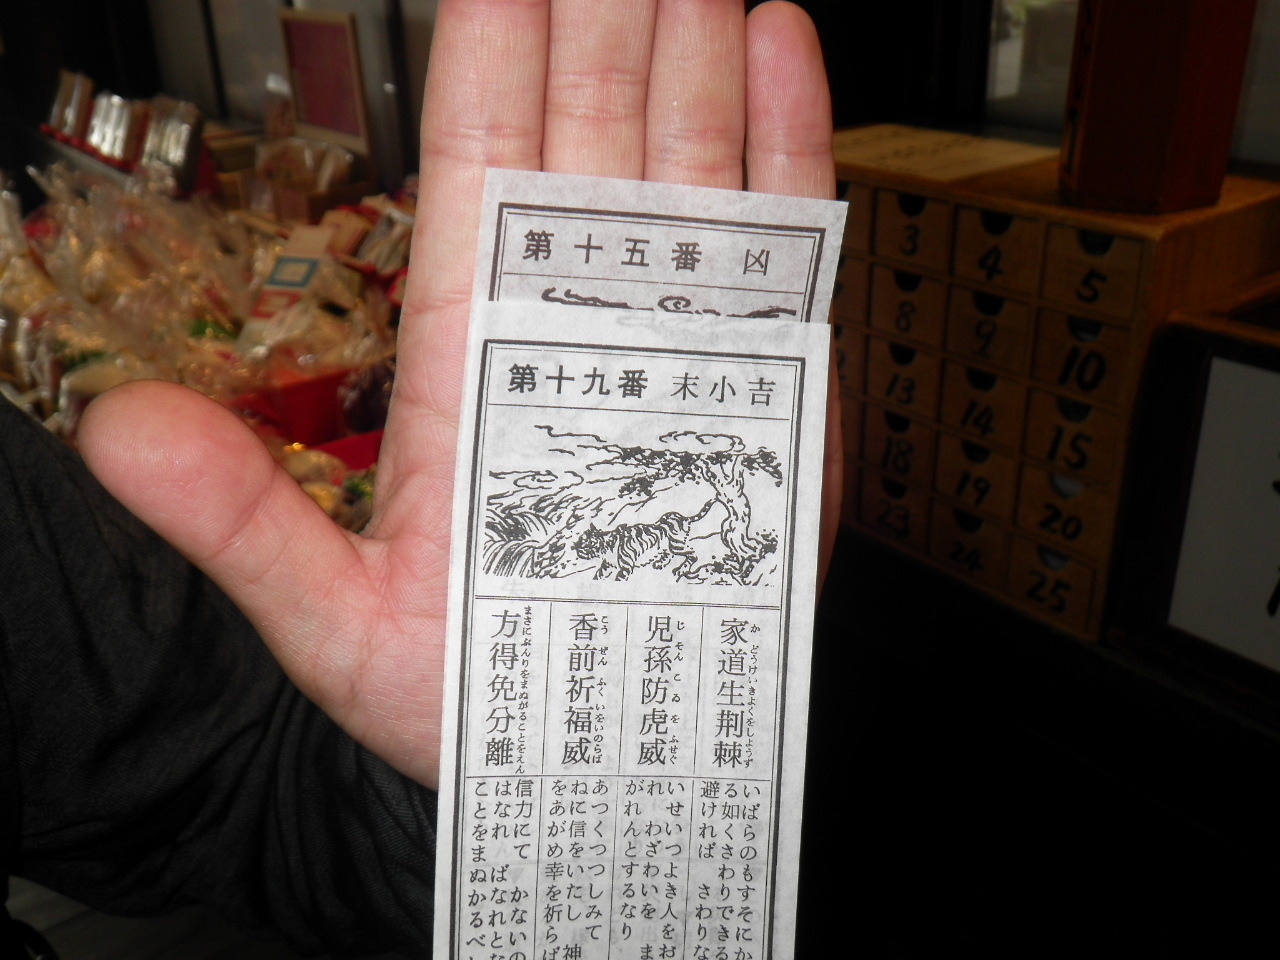 第十五番 凶
第十九番 末小吉
家道生荆棘
かどうけいきよくをしようず
児孫防虎威
じそんこゐをふせぐ
香前祈福威
こうぜんふくいをいのらば
方得免分離
まさにぶんりをまぬがることをえん
いばらのもすそにか
る如くさわりできる
避ければ さわりな
いせいつよき人をお
れ わざわいを ま
がれんとするなり
あつくつつしみて
ねに信をいたし 神
をあがめ幸を祈らば
信力にて かないの
はなれ ばなれとな
ことをまぬかるべし
3
4
5
8
9
10
13
14
15
18
19
20
23
24
25